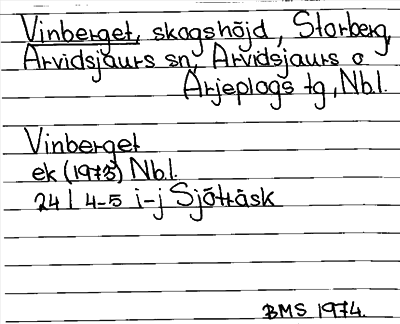 Vinberget, skogshöjd, Storberg,
Arvidsjaurs sn, Arvidsjaurs o
Arjeplogs tg, Nb.l.
Vinberget
ek (1973) Nb.l.
24 I 4-5 i-j Sjöträsk
BMS 1974.